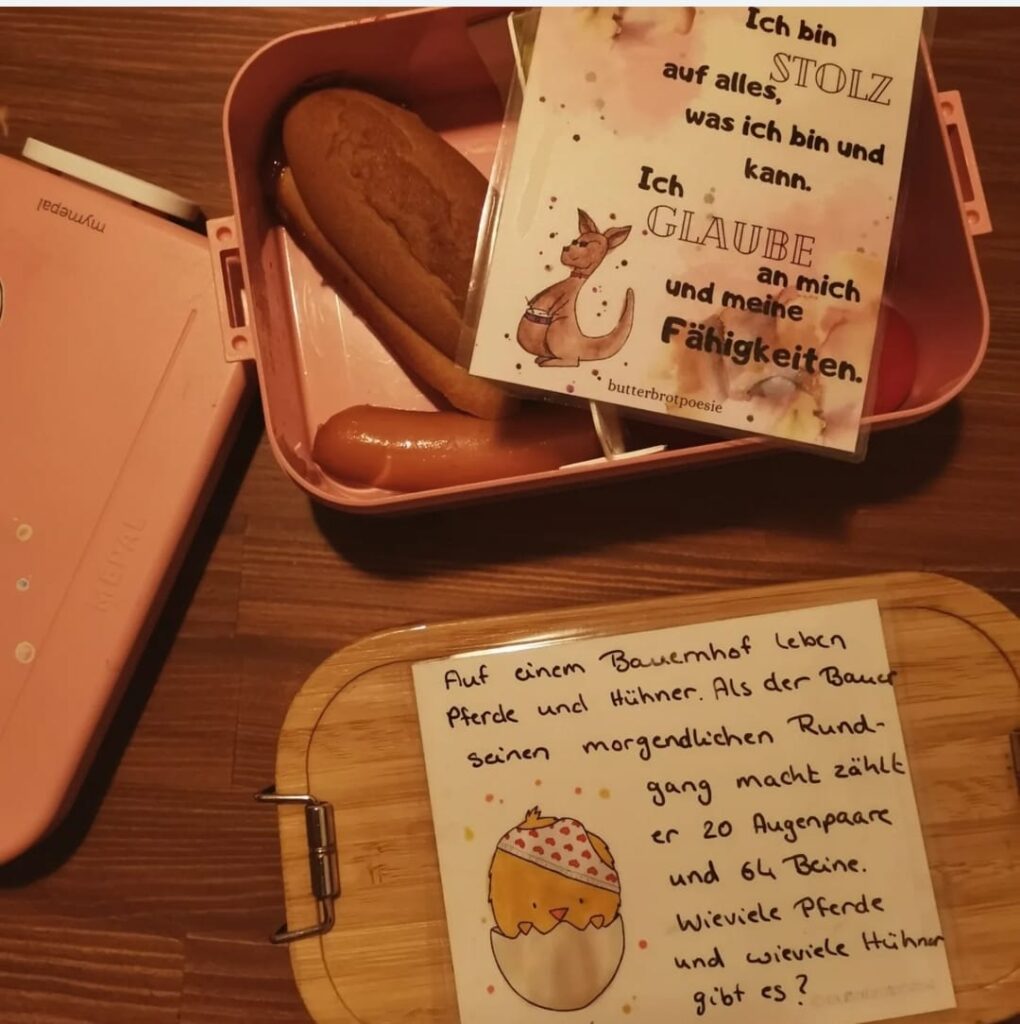 Ich bin
STOLZ
auf alles,
was ich bin und
kann.
Ich
GLAUBE
an mich
und meine
Fähigkeiten.
butterbrotpoesie
mymepal
MEPAL
Auf einem Bauernhof leben
Pferde und Hühner. Als der Bauer
seinen morgendlichen Rund-
gang macht zählt
er 20 Augenpaare
und 64 Beine.
Wieviele Pferde
und wieviele Hühner
gibt es?